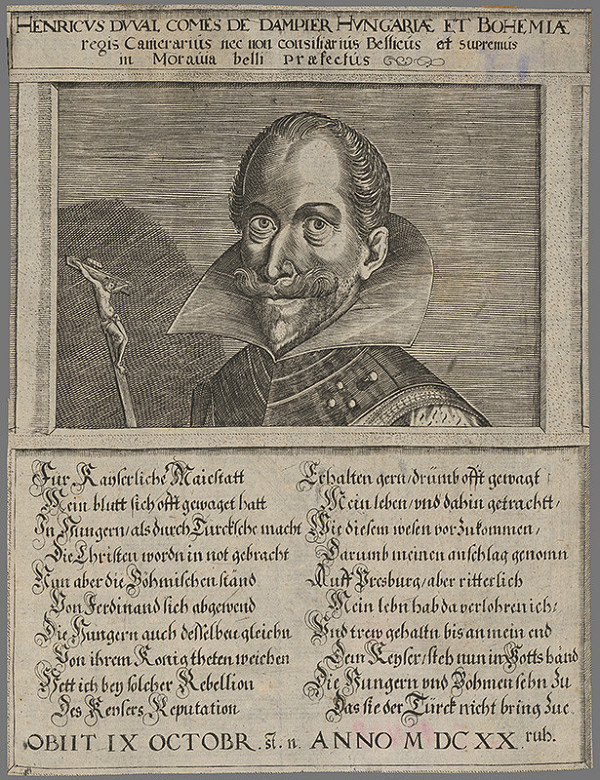 HENRICVS DVVAL COMES DE DAMPIER HVNGARIÆ ET BOHEMIÆ
regis Camerarius nec non consiliarius Bellicus et supremus
in Moravia belli Præfectus
Für Kayserliche Maiestatt
Mein blutt sich offt gewaget hatt
In Hungern, als durch Türcksche macht
Die Christen wordn in not gebracht
Nun aber die Böhmischen ständ
Von Ferdinand sich abgewend
Die Hungern auch desselben gleichn
Von ihrem König theten weichen
Hett ich bey solcher Rebellion
Des Keysers Reputation
Erhalten gern/drümb offt gewagt
Mein leben/vnd dahin getracht,
Wie diesem wesen vor zukommen/
Darumb meinen anschlag genomn
Auff Presburg/aber ritterlich
Mein lebn hab da verlohren ich/
Vnd trew gehaltn bis an mein end
Dem Keyser/steh nun in Gotts händ
Die Hungern vnd Böhmen sehn zu
Das sie der Türck nicht bring zue
ruh.
OBIIT IX OCTOBR. st. n. ANNO M DC XX